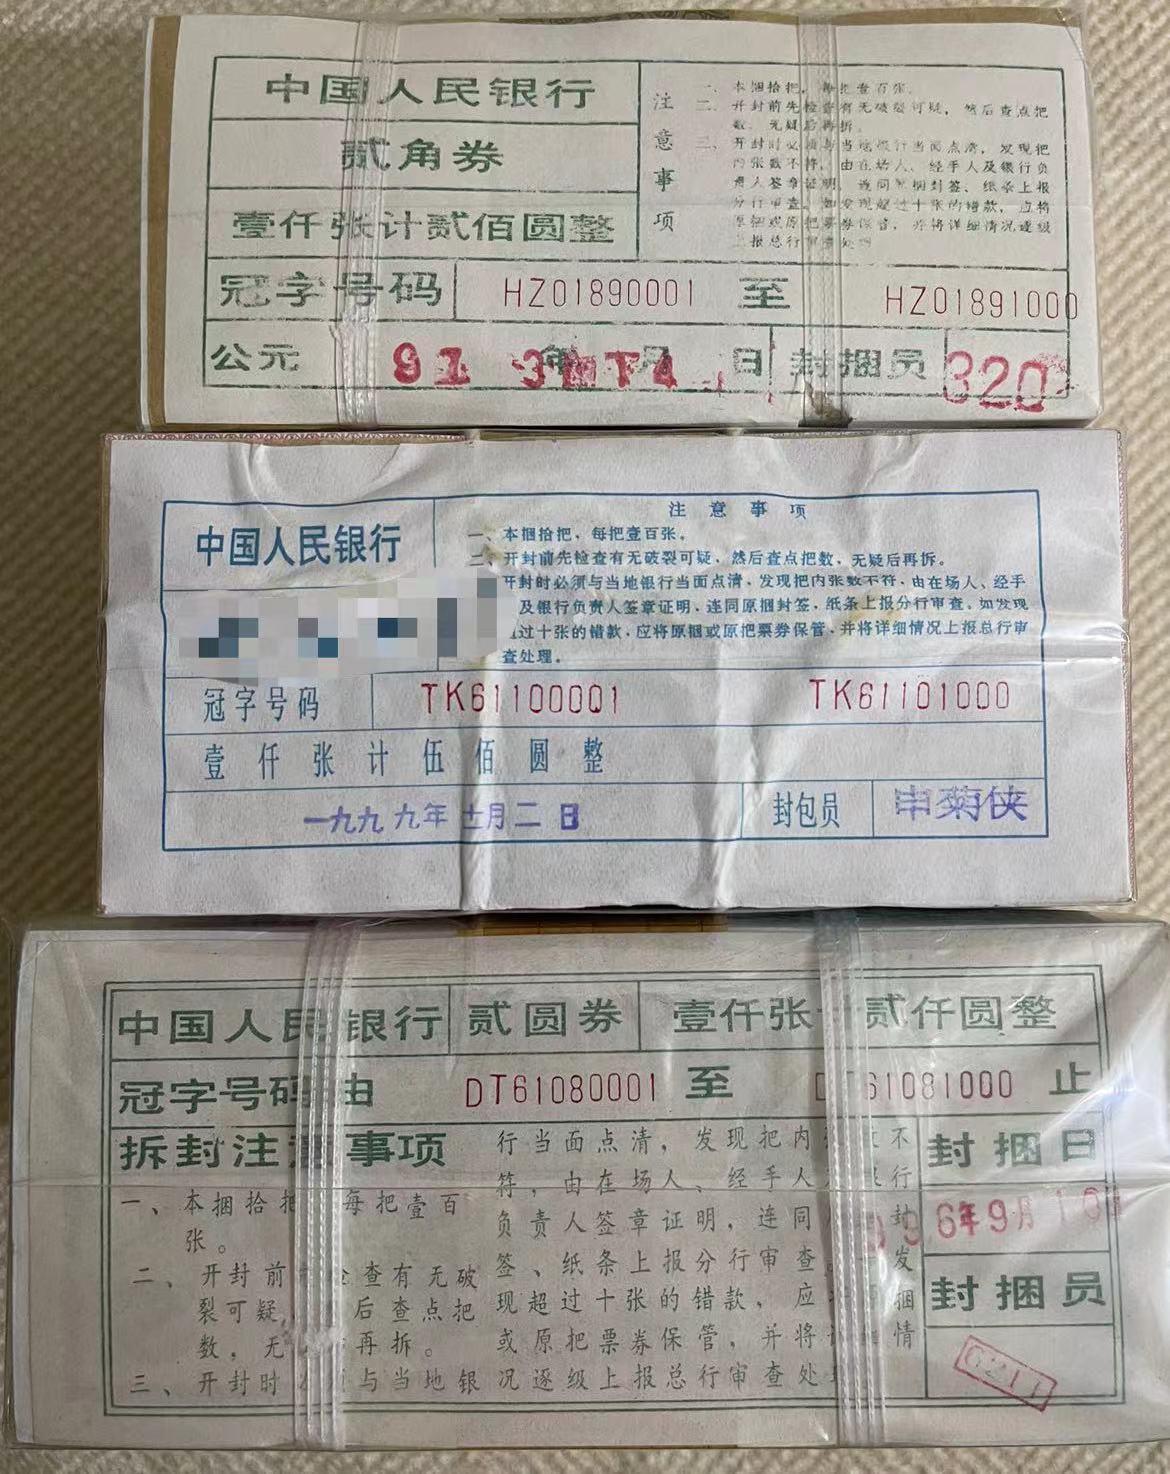 中国人民银行
贰角券
壹仟张计贰佰圆整
注意事项
一、本捆拾把，每把壹百张。
二、开封前先检查有无破裂可疑，然后查点把
数，无疑后再拆。
三、开封时必须与当地银行当面点清，发现把
内张数不符，由在场人、经手人及银行负
责人签章证明，连同原捆封签、纸条上报
分行审查。如发现超过十张的错款，应将
原捆或原把票券保管，并将详细情况逐级
上报总行审查处理
冠字号码 HZ01890001 至 HZ01891000
公元 91 年 月 日 封捆员 320
中国人民银行
注意事项
一、本捆拾把，每把壹百张。
二、开封前先检查有无破裂可疑，然后查点把数，无疑后再拆。
开封时必须与当地银行当面点清，发现把内张数不符，由在场人、经手
及银行负责人签章证明，连同原捆封签，纸条上报分行审查。如发现
过十张的错款，应将原捆或原把票券保管，并将详细情况上报总行审
查处理。
冠字号码 TK61100001 TK61101000
壹仟张计伍佰圆整
一九九九年十一月二日 封包员 申菊侠
中国人民银行 贰圆券 壹仟张 贰仟圆整
冠字号码由 DT61080001 至 DT61081000 止
拆封注意事项
一、本捆拾把 每把壹百
张。
二、开封前 查有无破
裂可疑， 后查点把
数，无 再拆。
三、开封时 与当地银
行当面点清，发现把内 不
符，由在场人、经手人 银行
负责人签章证明，连同 封
签、纸条上报分行审查 发
现超过十张的错款，应 捆
或原把票券保管，并将 情
况逐级上报总行审查处
封捆日
96年9月10
封捆员
0211